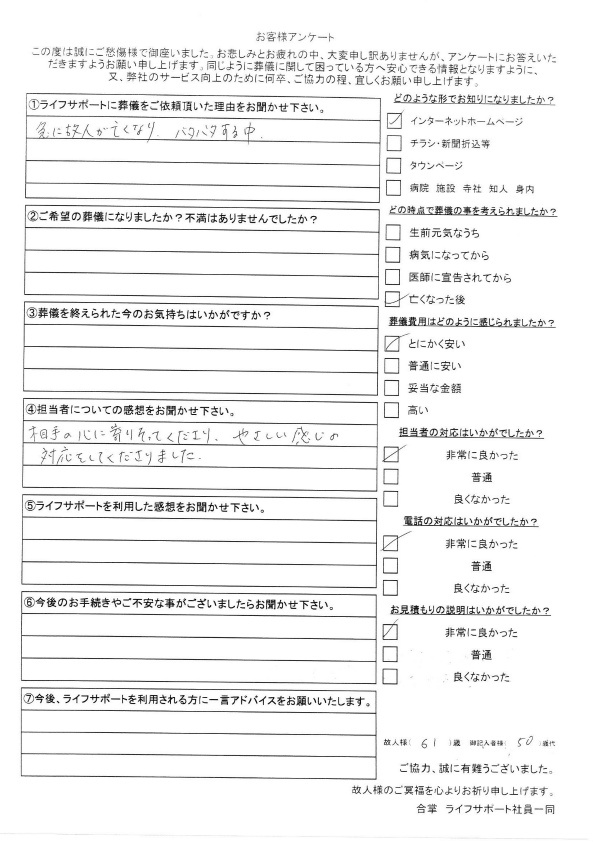 お客様アンケート
この度は誠にご愁傷様で御座いました。お悲しみとお疲れの中、大変申し訳ありませんが、アンケートにお答えいた
だきますようお願い申し上げます。同じように葬儀に関して困っている方へ安心できる情報となりますように、
又、弊社のサービス向上のために何卒、ご協力の程、宜しくお願い申し上げます。
①ライフサポートに葬儀をご依頼頂いた理由をお聞かせ下さい。
急に故人が亡くなり、バタバタする中、
②ご希望の葬儀になりましたか？不満はありませんでしたか？
③葬儀を終えられた今のお気持ちはいかがですか？
④担当者についての感想をお聞かせ下さい。
相手の心に寄りそってくださり、やさしい感じの
対応をしてくださりました。
⑤ライフサポートを利用した感想をお聞かせ下さい。
⑥今後のお手続きやご不安な事がございましたらお聞かせ下さい。
⑦今後、ライフサポートを利用される方に一言アドバイスをお願いいたします。
どのような形でお知りになりましたか？
インターネットホームページ
チラシ・新聞折込等
タウンページ
病院 施設 寺社 知人 身内
どの時点で葬儀の事を考えられましたか？
生前元気なうち
病気になってから
医師に宣告されてから
亡くなった後
葬儀費用はどのように感じられましたか？
とにかく安い
普通に安い
妥当な金額
高い
担当者の対応はいかがでしたか？
非常に良かった
普通
良くなかった
電話の対応はいかがでしたか？
非常に良かった
普通
良くなかった
お見積もりの説明はいかがでしたか？
非常に良かった
普通
良くなかった
故人様（ 61 ）歳 御記入者様（ 50 ）歳代
ご協力、誠に有難うございました。
故人様のご冥福を心よりお祈り申し上げます。
合掌 ライフサポート社員一同